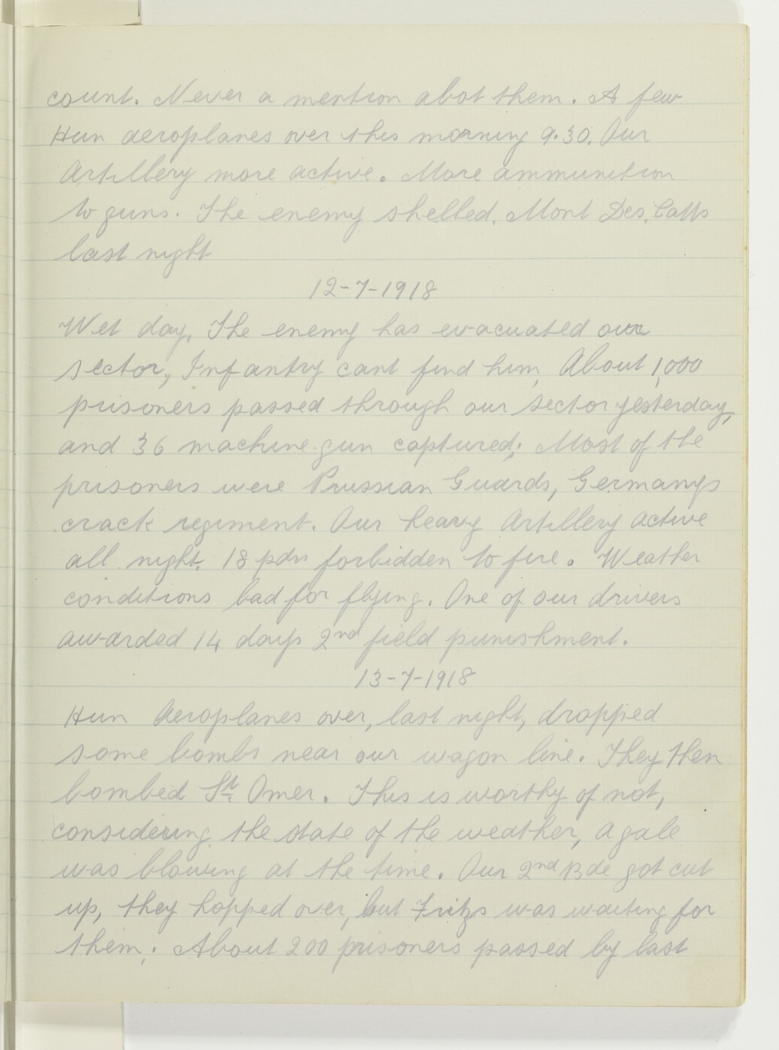 count. Never a mention abot them. A few
Hun aeroplanes over this morning 9.30. Our
Artillery more active. More ammunition
to guns. The enemy shelled. Mont Des. Catts
last night
12-7-1918
Wet day. The enemy has evacuated our
sector, Infantry cant find him. About 1,000
prisoners passed through our sector yesterday,
and 36 machine gun captured. Most of the
prisoners were Prussian Guards, Germanys
crack regiment. Our heavy Artillery active
all night. 18 pdrs forbidden to fire. Weather
conditions bad for flying. One of our drivers
awarded 14 days 2nd field punishment.
13-7-1918
Hun Aeroplanes over, last night, dropped
some bombs near our wagon line. They then
bombed St. Omer. This is worthy of not,
considering the state of the weather, a gale
was blowing at the time. Our 2nd Bde got cut
up, they hopped over, but Fritzs was waiting for
them. About 200 prisoners passed by last